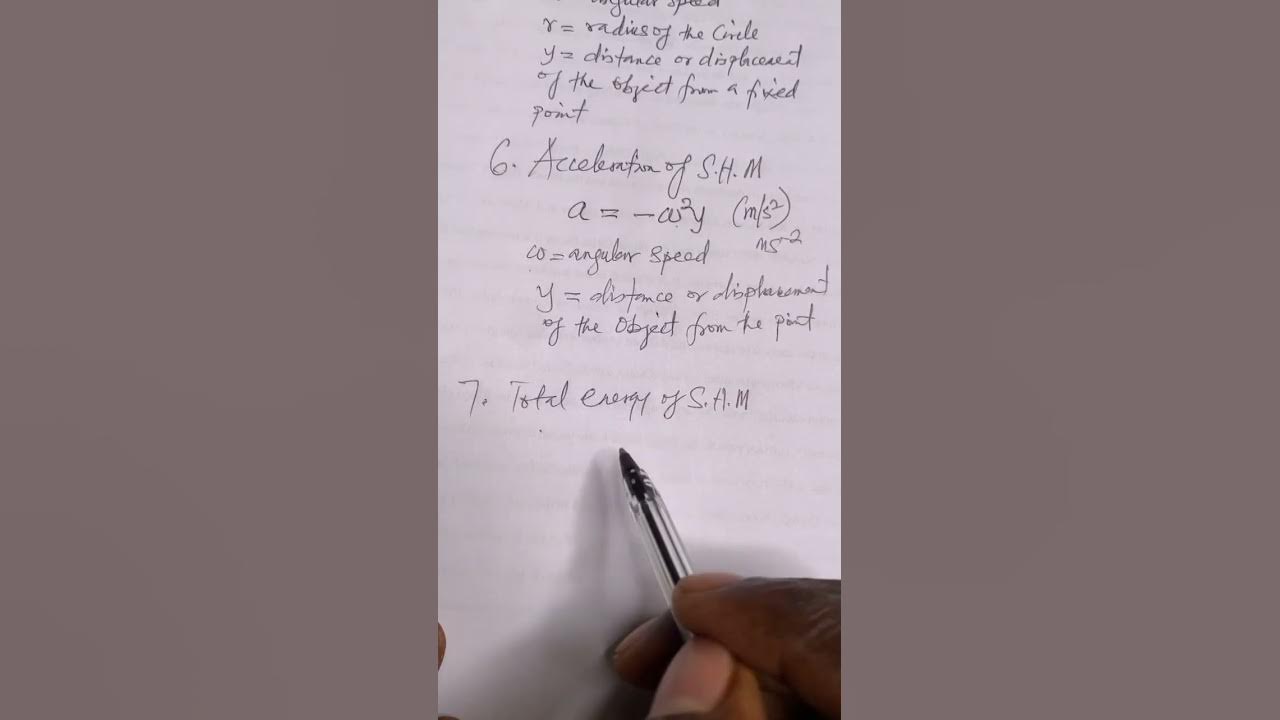 angular speed
r = radius of the Circle
y = distance or displacement
of the object from a fixed
point
6. Acceleration of S.H.M
a = -ω²y (m/s²)
ms⁻²
ω = angular speed
y = distance or displacement
of the Object from the point
7. Total energy of S.H.M